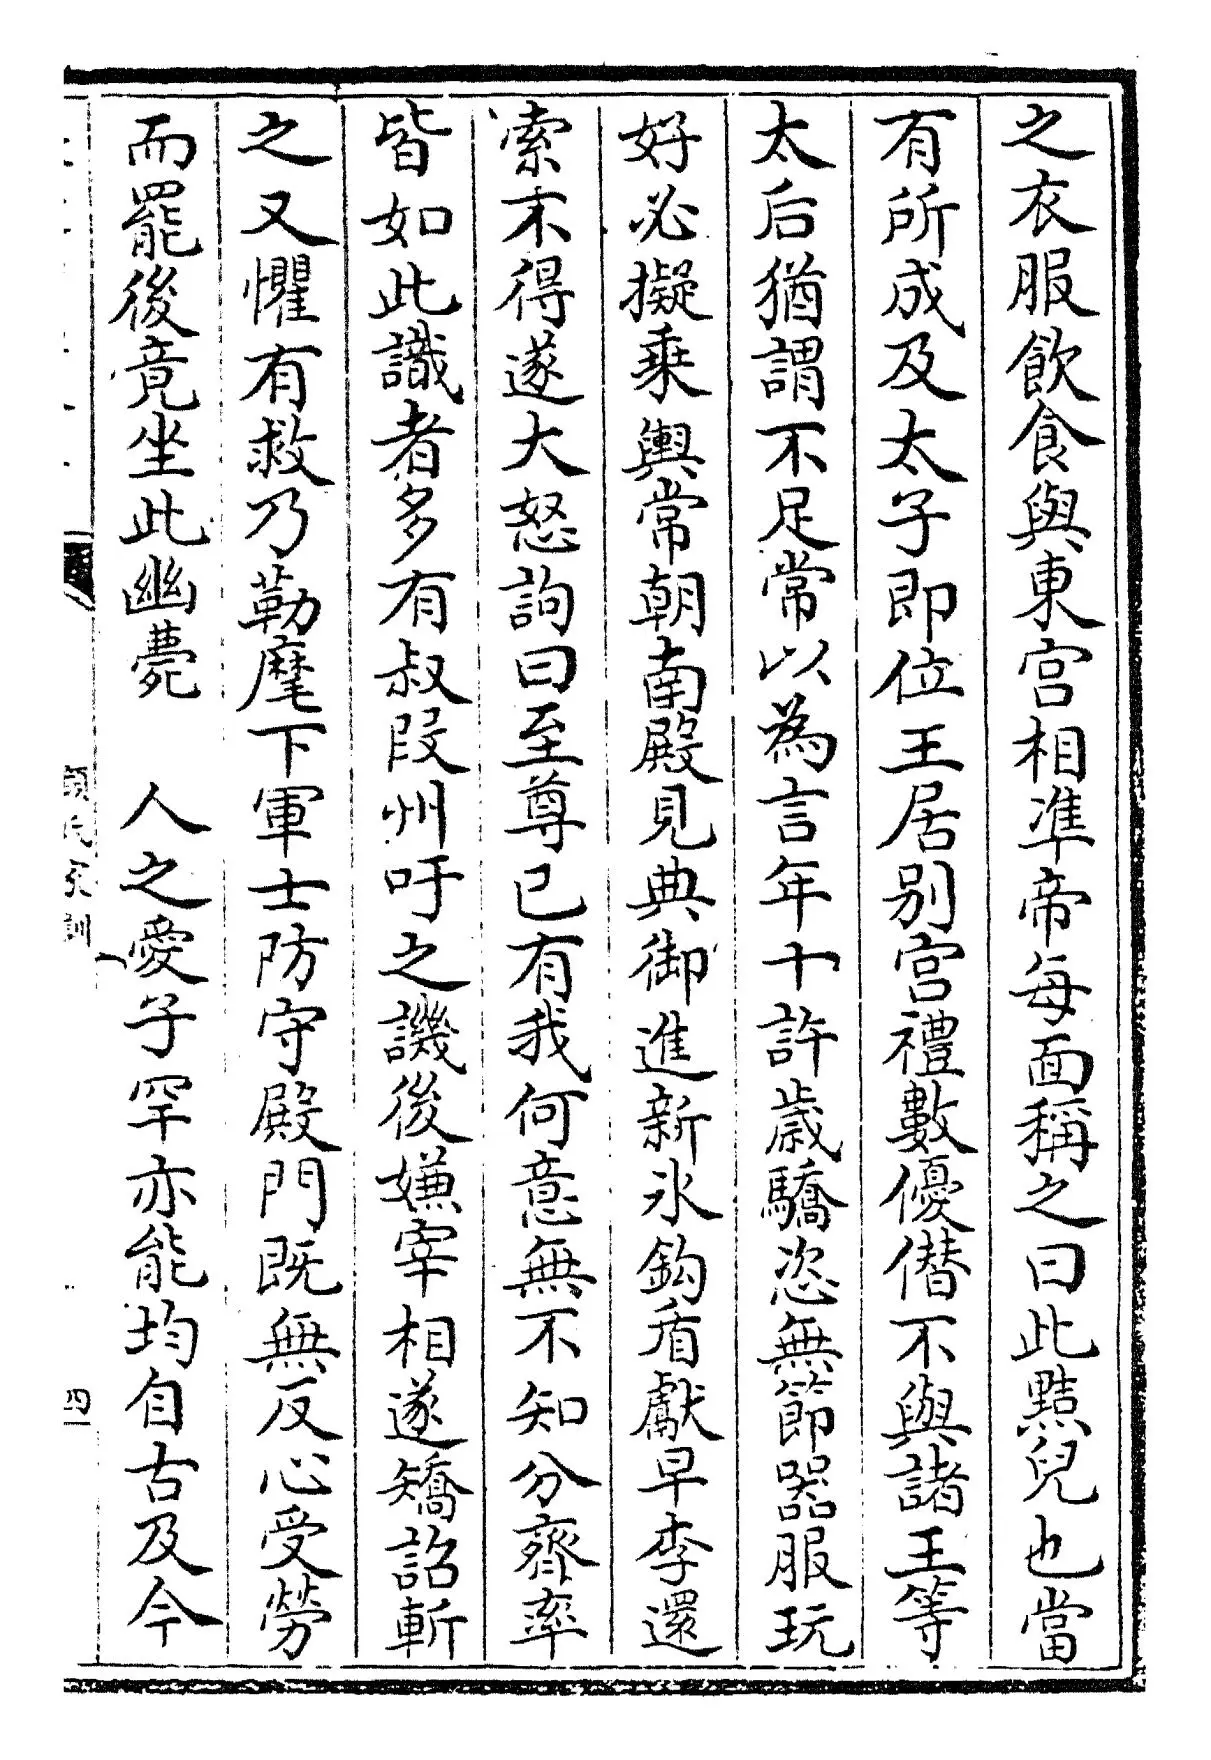 之衣服飲食與東宫相準帝每面稱之曰此黠兒也當
有所成及太子即位王居别宫禮數優僭不與諸王等
太后猶謂不足常以為言年十許歲驕恣無節器服玩
好必擬乗輿常朝南殿見典御進新氷鈎盾獻早李還
索不得遂大怒訽曰至尊已有我何意無不知分齊率
皆如此識者多有叔段州吁之譏後嫌宰相遂矯詔斬
之又懼有救乃勒麾下軍士防守殿門既無反心受勞
而罷後竟坐此幽薨　人之愛子罕亦能均自古及今
顔氏家訓
四